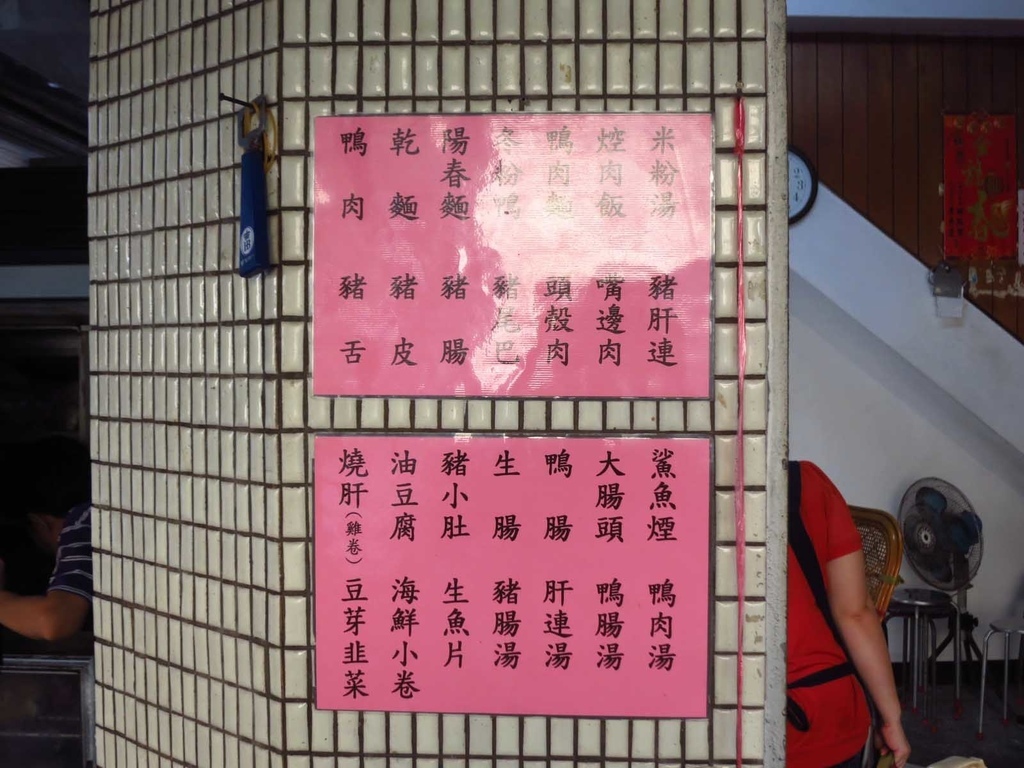 米粉湯
焢肉飯
鴨肉麵
冬粉鴨
陽春麵
乾麵
鴨肉
豬肝連
嘴邊肉
頭殼肉
豬尾巴
豬腸
豬皮
豬舌
鯊魚煙
大腸頭
鴨腸
生腸
豬小肚
油豆腐
燒肝(雞卷)
鴨肉湯
鴨腸湯
肝連湯
豬腸湯
生魚片
海鮮小卷
豆芽韭菜
2
3
4
春